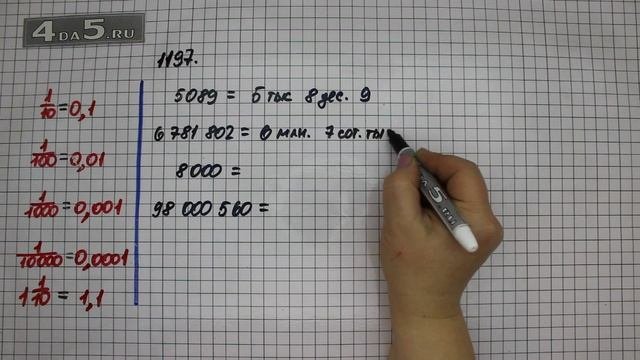 4DA5.RU
1197.
1/10 = 0,1
1/100 = 0,01
1/1000 = 0,001
1/10000 = 0,0001
1 1/10 = 1,1
5089 = 5 тыс 8 дес. 9
6 781 802 = 6 млн. 7 сот. ты
8000 =
98 000 560 =